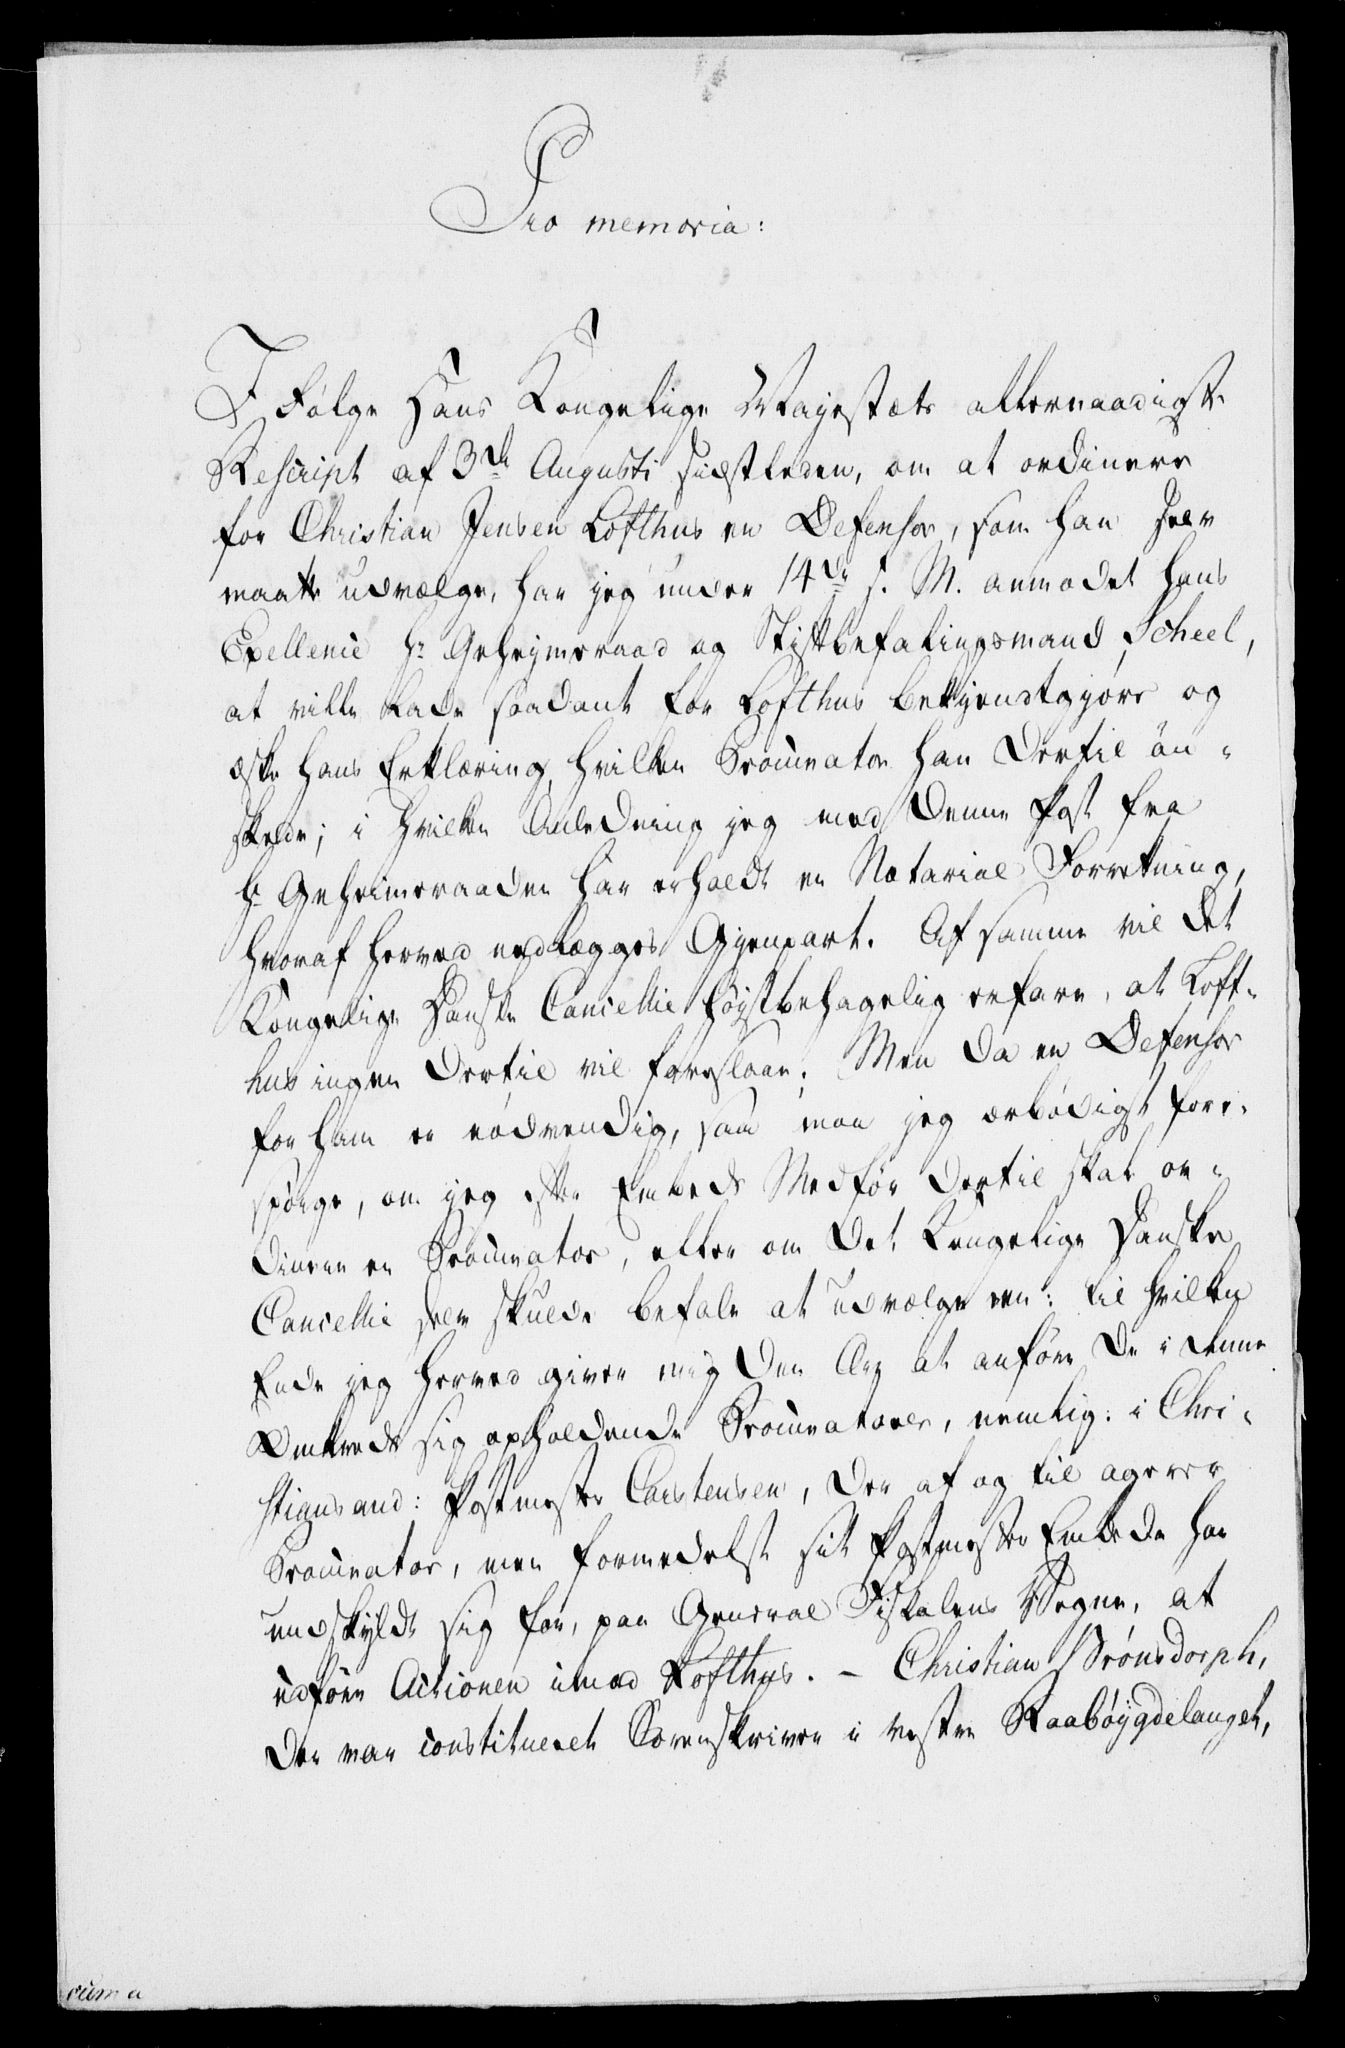 Pro memoria:
I Følge Hans Kongelige Mayestæts allernaadigste
Rescript af 3de Augusti sidstleden, om at ordinere
for Christian Jensen Lofthus en Defensor, som han selv
maatte udvælge, har jeg under 14de s. M. anmodet Hans
Exellence Hr Geheymeraad og Stiftbefalingsmand Scheel,
at ville lade saadant for Lofthus bekjendtgjøre og
æske hans Erklæring, hvilken Procurator han dertil øn-
skede; i hvilken Anledning jeg med denne Post fra
Hr Geheimeraaden har erholdt en Notarial Forretning,
hvoraf herved vedlægges Gjenpart. Af samme vil det
Kongelige Danske Cancellie høystbehagelig erfare, at Loft-
hus ingen dertil vil foreslaae. Men da en Defensor
for ham er nødvendig, saa maa jeg ærbødigst fore-
spørge, om jeg efter Embeds Medfør dertil skal or-
dinere en Procurator, eller om det Kongelige Danske
Cancellie selv skulde befale at udvælge een: til hvilken
Ende jeg herved giver mig den Ære at anføre de i denne
Omkreds sig opholdende Procuratorer, nemlig: i Chri-
stiansand: Postmester Carstensen, der af og til agerer
Procurator, men formedelst sit Postmester Embede har
undskyldt sig for, paa General Fiskalens Vegne, at
udføre Actionen imod Lofthus. - Christian Brønsdorph,
der var constitueret Sorenskriver i vestre Raabøygdelauget,
cum a